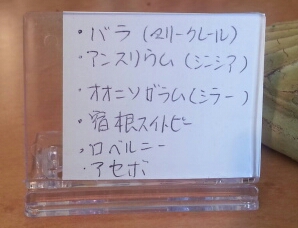 ・バラ(マリークレール)
・アンスリウム(シンシア)
・オオニソガラム(シラー)
・宿根スイトピー
・ロベルニー
・アセボ